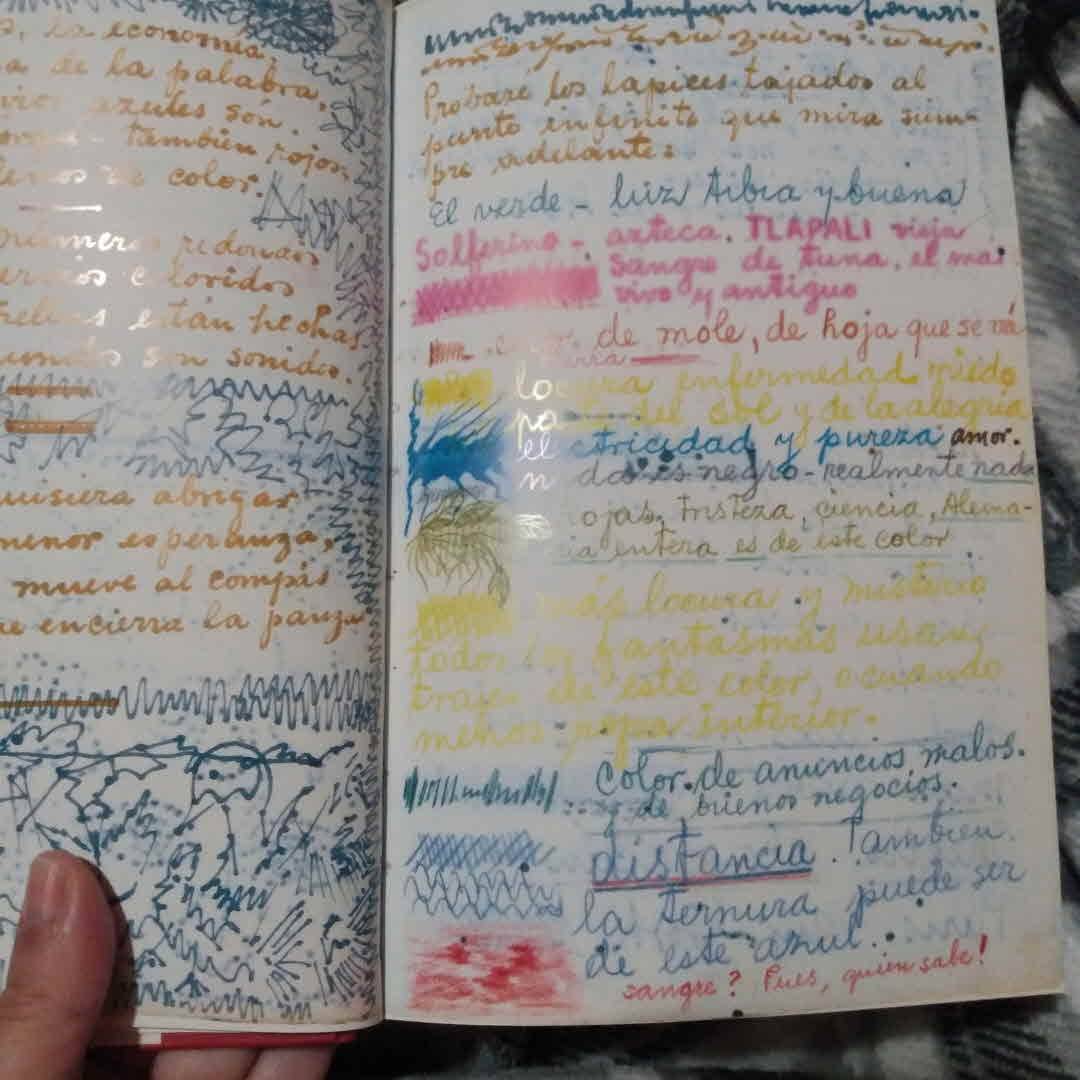 la economía,
de la palabra,
azules són.
también rojos
de color.
redondos
coloridos
están hechas
son sonidos.
quisiera abrigar
menor esperanza,
mueve al compás
encierra la panza
Probaré los lapices tajados al
punto infinito que mira siem-
pre adelante:
El verde - luz tibia y buena
Solferino - azteca. TLAPALI vieja
Sangre de tuna, el más
vivo y antiguo
de mole, de hoja que se va
locura enfermedad miedo
del sol y de la alegría
electricidad y pureza amor.
es negro - realmente nada
ojas, tristeza, ciencia, Alema-
entera es de este color
más locura y misterio
todos los fantasmas usan
trajes de este color, o cuando
menos ropa interior.
color de anuncios malos.
y de buenos negocios.
distancia. Tambien
la ternura puede ser
de este azul.
sangre? Pues, quien sabe!